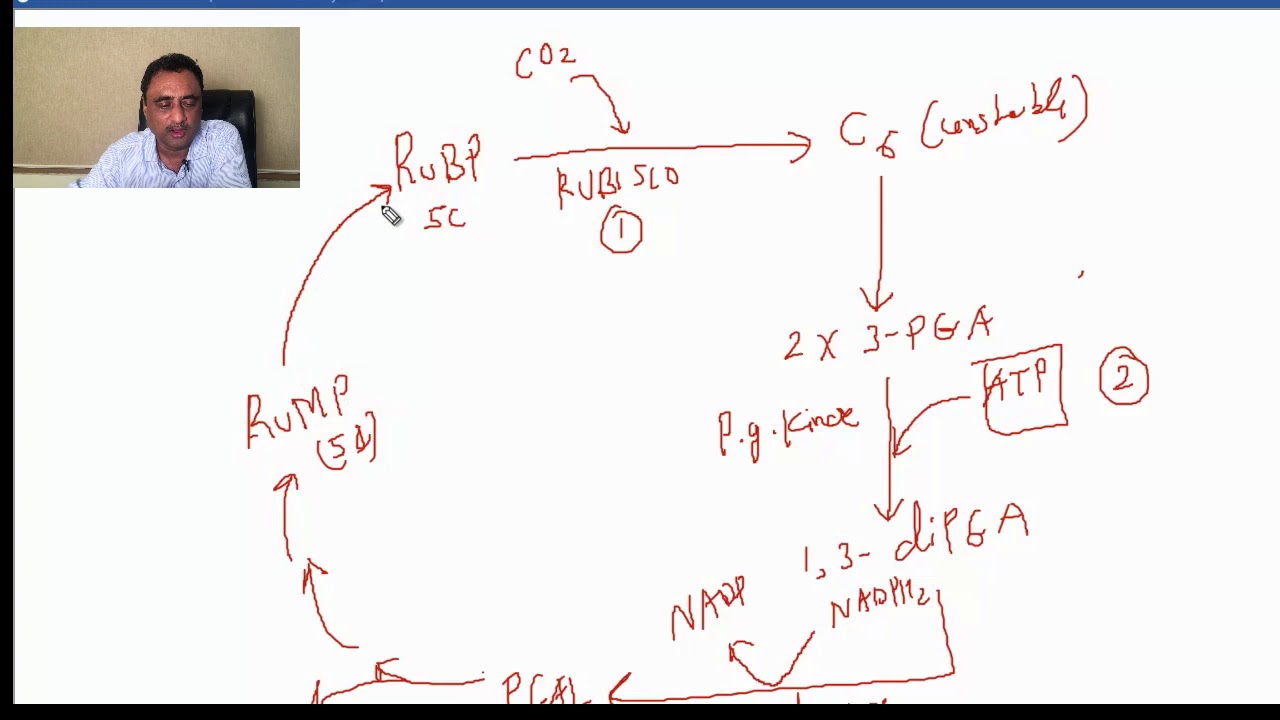 CO2
RuBP
5C
RUBISCO
1
C6 (unstable)
2 X 3-PGA
ATP
2
P.g.Kinase
RuMP
(5C)
1,3- diPGA
NADP
NADPH2
PGAL